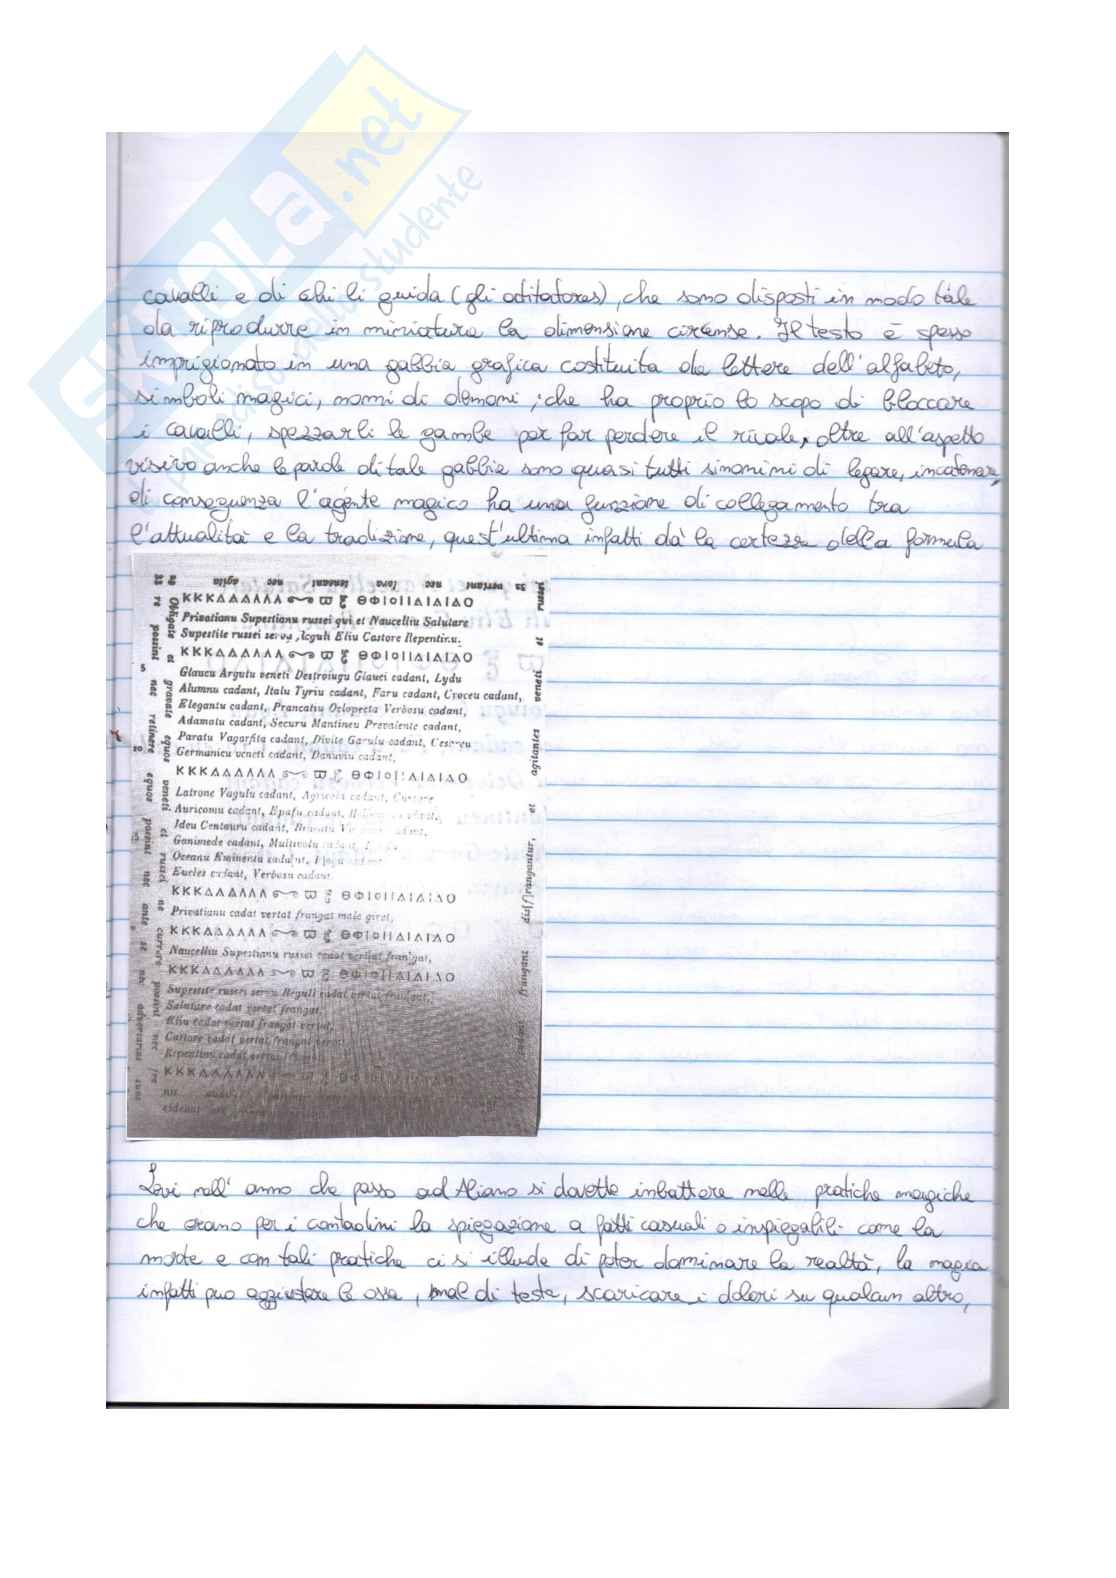 SKUOLA.net
paradiso dello studente
cavalli e di chi li guida (gli actitatores), che sono disposti in modo tale
da riprodurre in miniatura la dimensione circense. Il testo è spesso
imprigionato in una gabbia grafica costituita da lettere dell'alfabeto,
simboli magici, nomi di demoni, che ha proprio lo scopo di bloccare
i cavalli, spezzarli le gambe per far perdere il rivale, oltre all'aspetto
visivo anche le parole di tale gabbia sono quasi tutti sinonimi di legare, incatenare,
di conseguenza l'agente magico ha una funzione di collegamento tra
l'attualità e la tradizione, quest'ultima infatti dà la certezza della formula
vertant nec lora teneant nec agila
ΚΚΚΔΔΔΛΛΛ ΘΦΙΟΙΙΔΙΔΙΔΟ
Privatianu Supestianu russei qui et Naucelliu Salutare
Supestite russei servu Reguli Eliu Castore Repentinu.
ΚΚΚΔΔΔΛΛΛ ΘΦΙΟΙΙΔΙΔΙΔΟ
5
Glaucu Argutu veneti Destroiugu Glauci cadant, Lydu
Alumnu cadant, Italu Tyriu cadant, Faru cadant, Croceu cadant,
Elegantu cadant, Prancatiu Oclopecta Verbosu cadant,
Adamatu cadant, Securu Mantineu Prevalente cadant,
Paratu Vagarfita cadant, Divite Garulu cadant, Cesareu
10
Germanicu veneti cadant, Danuviu cadant,
ΚΚΚΔΔΔΛΛΛ ΘΦΙΟΙΙΔΙΔΙΔΟ
Latrone Vagulu cadant, Agricola cadant, Cursore
Auricomu cadant, Epafu cadant,
Ideu Centauru cadant, Bracatu cadant,
15
Ganimede cadant, Multivolu cadant,
Oceanu Eminentu cadant,
Eucles cadant, Verbosu cadant.
ΚΚΚΔΔΔΛΛΛ ΘΦΙΟΙΙΔΙΔΙΔΟ
Privatianu cadat vertat frangat male giret,
ΚΚΚΔΔΔΛΛΛ ΘΦΙΟΙΙΔΙΔΙΔΟ
Naucelliu Supestianu russei cadat vertat frangat,
ΚΚΚΔΔΔΛΛΛ ΘΦΙΟΙΙΔΙΔΙΔΟ
Supestite russei servu Reguli cadat vertat frangat,
Salutare cadat vertat frangat,
Eliu cadat vertat frangat vertat,
Castore cadat vertat frangat vertat,
Repentinu cadat vertat frangat
ΚΚΚΔΔΔΛΛΛ ΘΦΙΟΙΙΔΙΔΙΔΟ
Obligate et gravate equos veneti et russei ne currere possint nec
re possint nec retinere equos possint nec ante se nec adversarios suos
cadant frangant disfrangantur, et agitantes veneti et russei
Levi nell' anno che passo ad Aliano si dovette imbattere nelle pratiche magiche
che erano per i contadini la spiegazione a fatti casuali o inspiegabili come la
morte e con tali pratiche ci si illude di poter dominare la realtà, la magia
infatti può aggiustare le ossa, mal di testa, scaricare i dolori su qualcun altro,